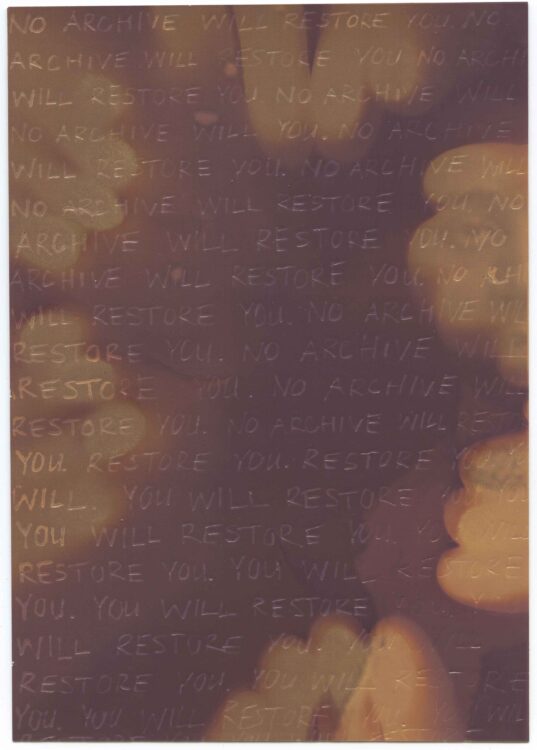 NO ARCHIVE WILL RESTORE YOU. NO
ARCHIVE WILL RESTORE YOU NO ARCHI
WILL RESTORE YOU NO ARCHIVE WILL
NO ARCHIVE WILL YOU. NO ARCHIVE
WILL RESTORE YOU. NO ARCHIVE WILL
NO ARCHIVE WILL RESTORE YOU NO
ARCHIVE WILL RESTORE YOU. NO
ARCHIVE WILL RESTORE YOU. NO
WILL RESTORE YOU. NO ARCHIVE WIL
RESTORE YOU. NO ARCHIVE WILL
RESTORE YOU. NO ARCHIVE WILL
RESTORE YOU. NO ARCHIVE WILL REST
YOU. RESTORE YOU. RESTORE YOU
WILL. YOU WILL RESTORE YOU.
YOU WILL RESTORE YOU.
RESTORE YOU. YOU WILL RESTORE
YOU. YOU WILL RESTORE
WILL RESTORE YOU. YOU WILL
RESTORE YOU. YOU WILL RESTORE
YOU. YOU WILL RESTORE YOU. WILL